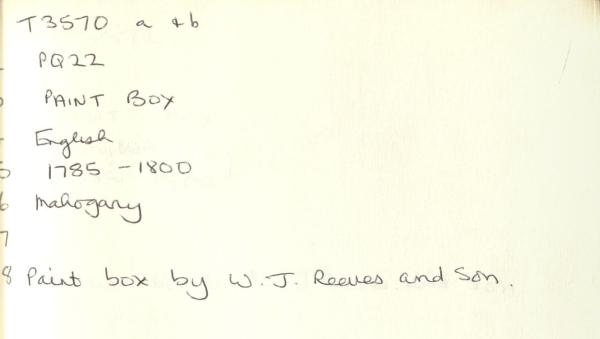 T3570 a & b
PQ22
PAINT BOX
English
5 1785 - 1800
6 Mahogany
7
8 Paint box by W. J. Reeves and Son.